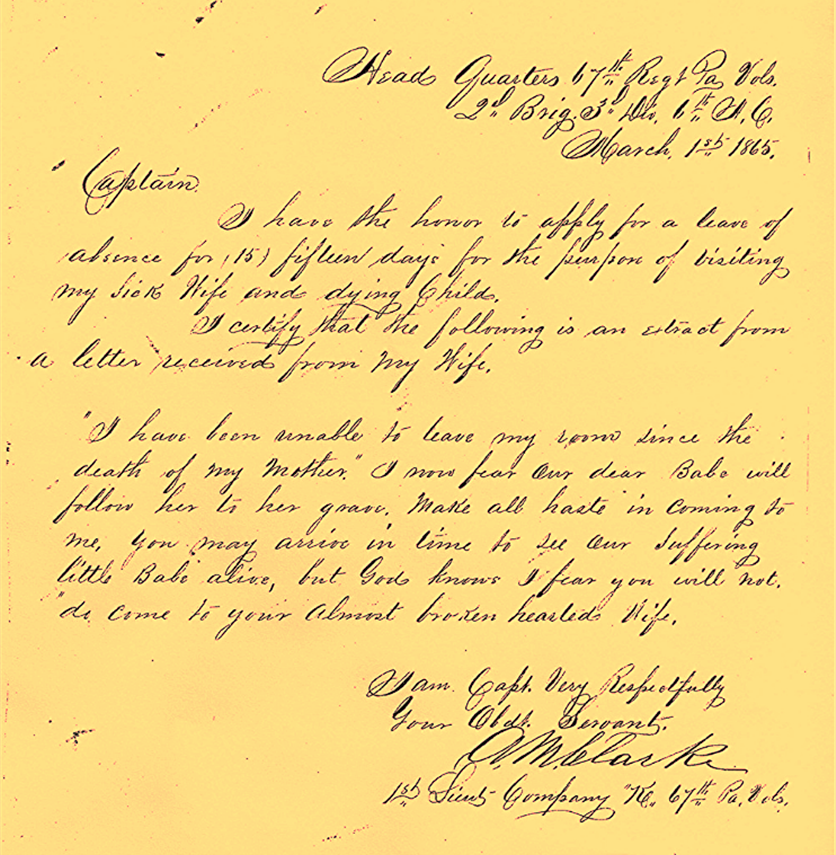 Head Quarters 67th Regt Pa Vols.
2d Brig. 3d Div. 6th A. C.
March, 1st 1865.
Captain.
I have the honor to apply for a leave of
absence for (15) fifteen days for the purpose of visiting
my Sick Wife and dying Child.
I certify that the following is an extract from
a letter received from my Wife.
"I have been unable to leave my room since the
death of my Mother." I now fear Our dear Babe will
follow her to her grave. Make all haste in coming to
me, you may arrive in time to see Our Suffering
little Babe alive, but God knows I fear you will not.
"do come to your Almost broken hearted Wife.
I am. Capt. Very Respectfully
Your Obdt. Servant.
A. M. Clarke
1st Lieut Company "K" 67th Pa. Vols.